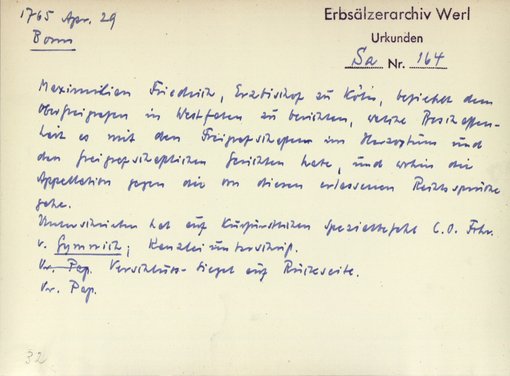 1765 Apr. 29
Bonn
Erbsälzerarchiv Werl
Urkunden
Sa Nr. 164
Maximilian Friedrich, Erzbischof zu Köln, befiehlt dem
Oberfreigrafen in Westfalen zu berichten, welche Beschaffen-
heit es mit den Freigrafschaften im Herzogtum und
den freigrafschaftlichen Gerichten habe, und wohin die
Appellation gegen die von diesen erlassenen Rechtssprüche
gehe.
Unterschrieben hat auf Kurfürstlichen Spezialbefehl C.O. Frhr.
v. Gymnich; Kanzleiunterschrift.
Or. Pap. Verschluss-Siegel auf Rückseite.
Or. Pap.
32